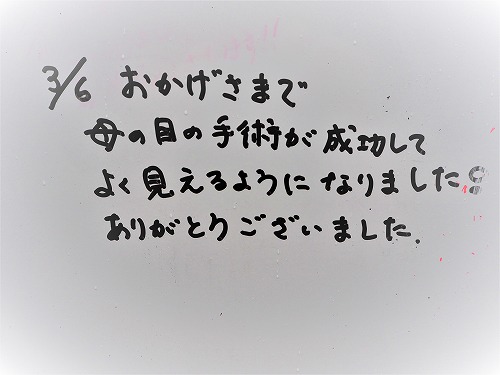 3/6 おかげさまで
母の目の手術が成功して
よく見えるようになりました!!
ありがとうございました.